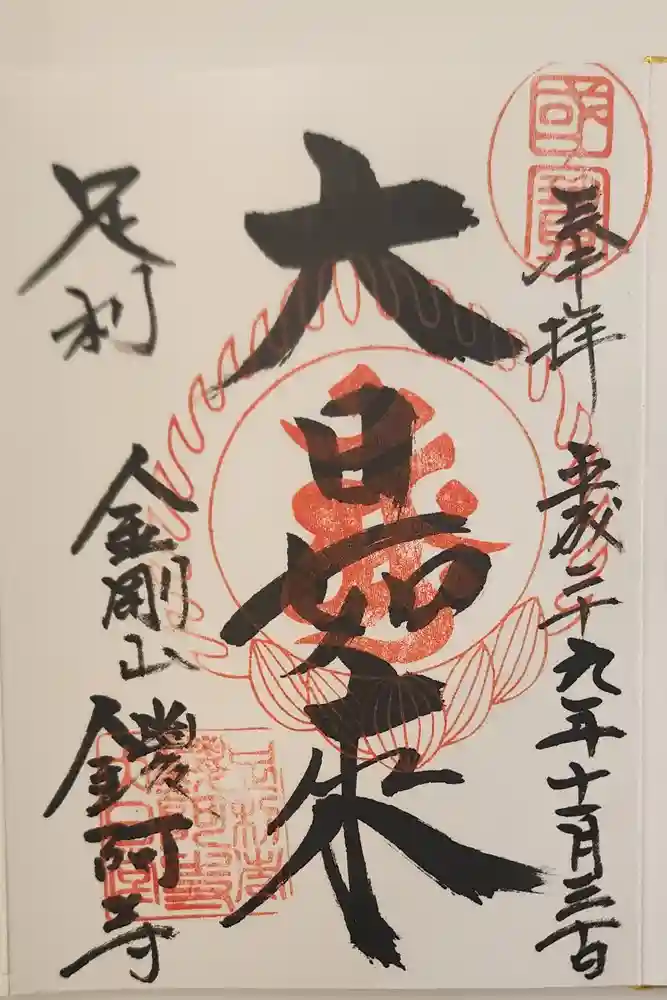 國寳
奉拝 平成二十九年十一月三十日
大日如来
足利
金剛山 鑁阿寺